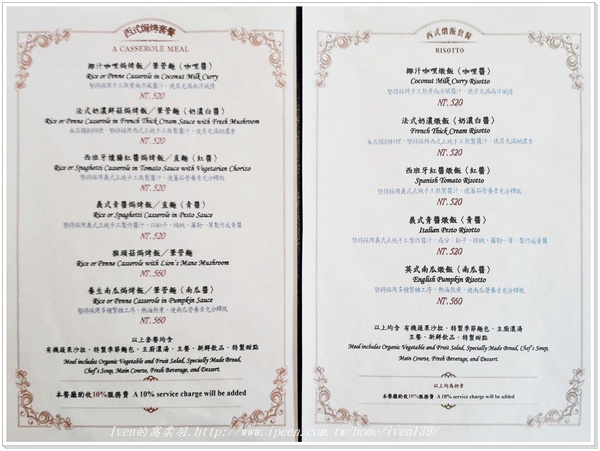 西式焗烤套餐
A CASSEROLE MEAL
椰汁咖哩焗烤飯／筆管麵〈咖哩醬〉
Rice or Penne Casserole in Coconut Milk Curry
NT.520
法式奶濃鮮菇焗烤飯／筆管麵〈奶濃白醬〉
Rice or Penne Casserole in French Thick Cream Sauce with Fresh Mushroom
NT.520
西班牙燻腸紅醬焗烤飯／直麵〈紅醬〉
Rice or Spaghetti Casserole in Tomato Sauce with Vegetarian Chorizo
NT.520
義式青醬焗烤飯／直麵〈青醬〉
Rice or Spaghetti Casserole in Pesto Sauce
NT.520
猴頭菇焗烤飯／筆管麵
Rice or Penne Casserole with Lion's Mane Mushroom
NT.560
養生南瓜焗烤飯／筆管麵〈南瓜醬〉
Rice or Penne Casserole in Pumpkin Sauce
NT.560
以上套餐均含
有機蔬果沙拉．特製季節麵包．主廚濃湯
主餐．新鮮飲品．特製甜點
Meal includes Organic Vegetable and Fruit Salad, Specially Made Bread,
Chef's Soup, Main Course, Fresh Beverage, and Dessert.
本餐廳酌收10%服務費 A 10% service charge will be added
西式燉飯套餐
RISOTTO
椰汁咖哩燉飯〈咖哩醬〉
Coconut Milk Curry Risotto
NT.520
法式奶濃燉飯〈奶濃白醬〉
French Thick Cream Risotto
NT.520
西班牙紅醬燉飯〈紅醬〉
Spanish Tomato Risotto
NT.520
義式青醬燉飯〈青醬〉
Italian Pesto Risotto
NT.520
英式南瓜燉飯〈南瓜醬〉
English Pumpkin Risotto
NT.560
以上均含 有機蔬果沙拉．特製季節麵包．主廚濃湯
主餐．新鮮飲品．特製甜點
Meal includes Organic Vegetable and Fruit Salad, Specially Made Bread, Chef's Soup,
Main Course, Fresh Beverage, and Dessert.
以上均為奶素
本餐廳酌收10%服務費 A 10% service charge will be added
Iven的窩柔羽.http://www.ipeen.com.tw/home/iven139/